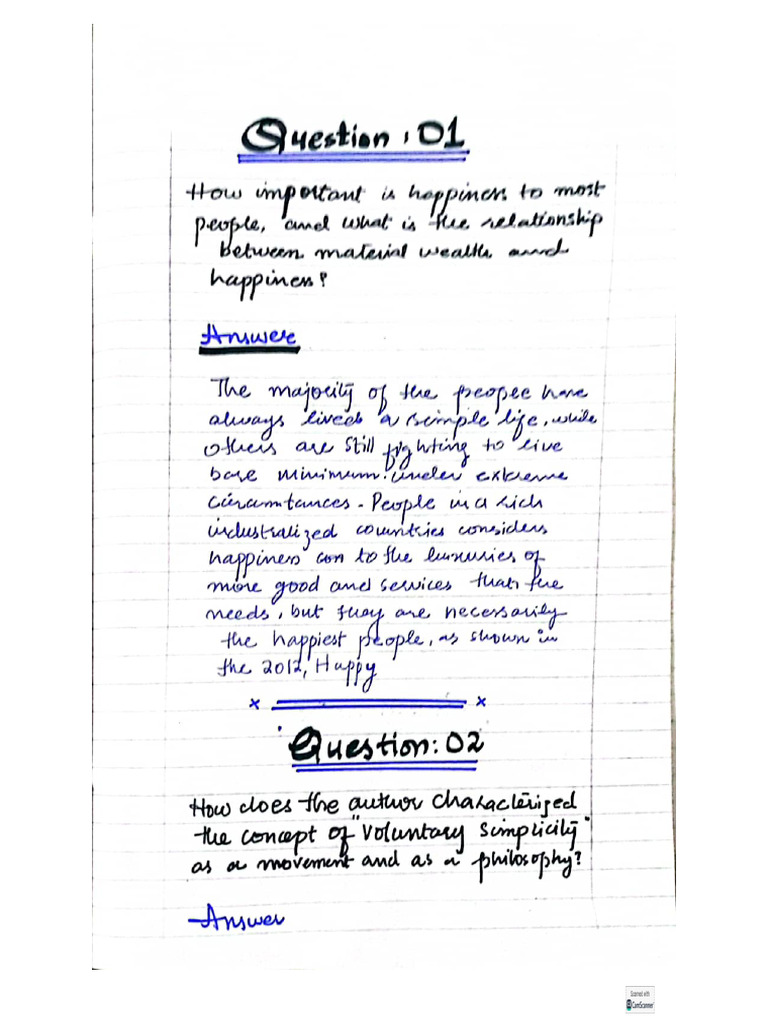 Question: 01
How important is happiness to most
people, and what is the relationship
between material wealth and
happiness?
Answer
The majority of the people have
always lived a simple life, while
others are still fighting to live
bare minimum under extreme
circumtances. People in a rich
industralized countries considers
happiness can to the luxuries of
more good and services than the
needs, but they are necessarily
the happiest people, as shown in
the 2012, Happy
x x
Question: 02
How does the author characterized
the concept of "Voluntary Simplicity"
as a movement and as a philosophy?
Answer
Scanned with
CamScanner